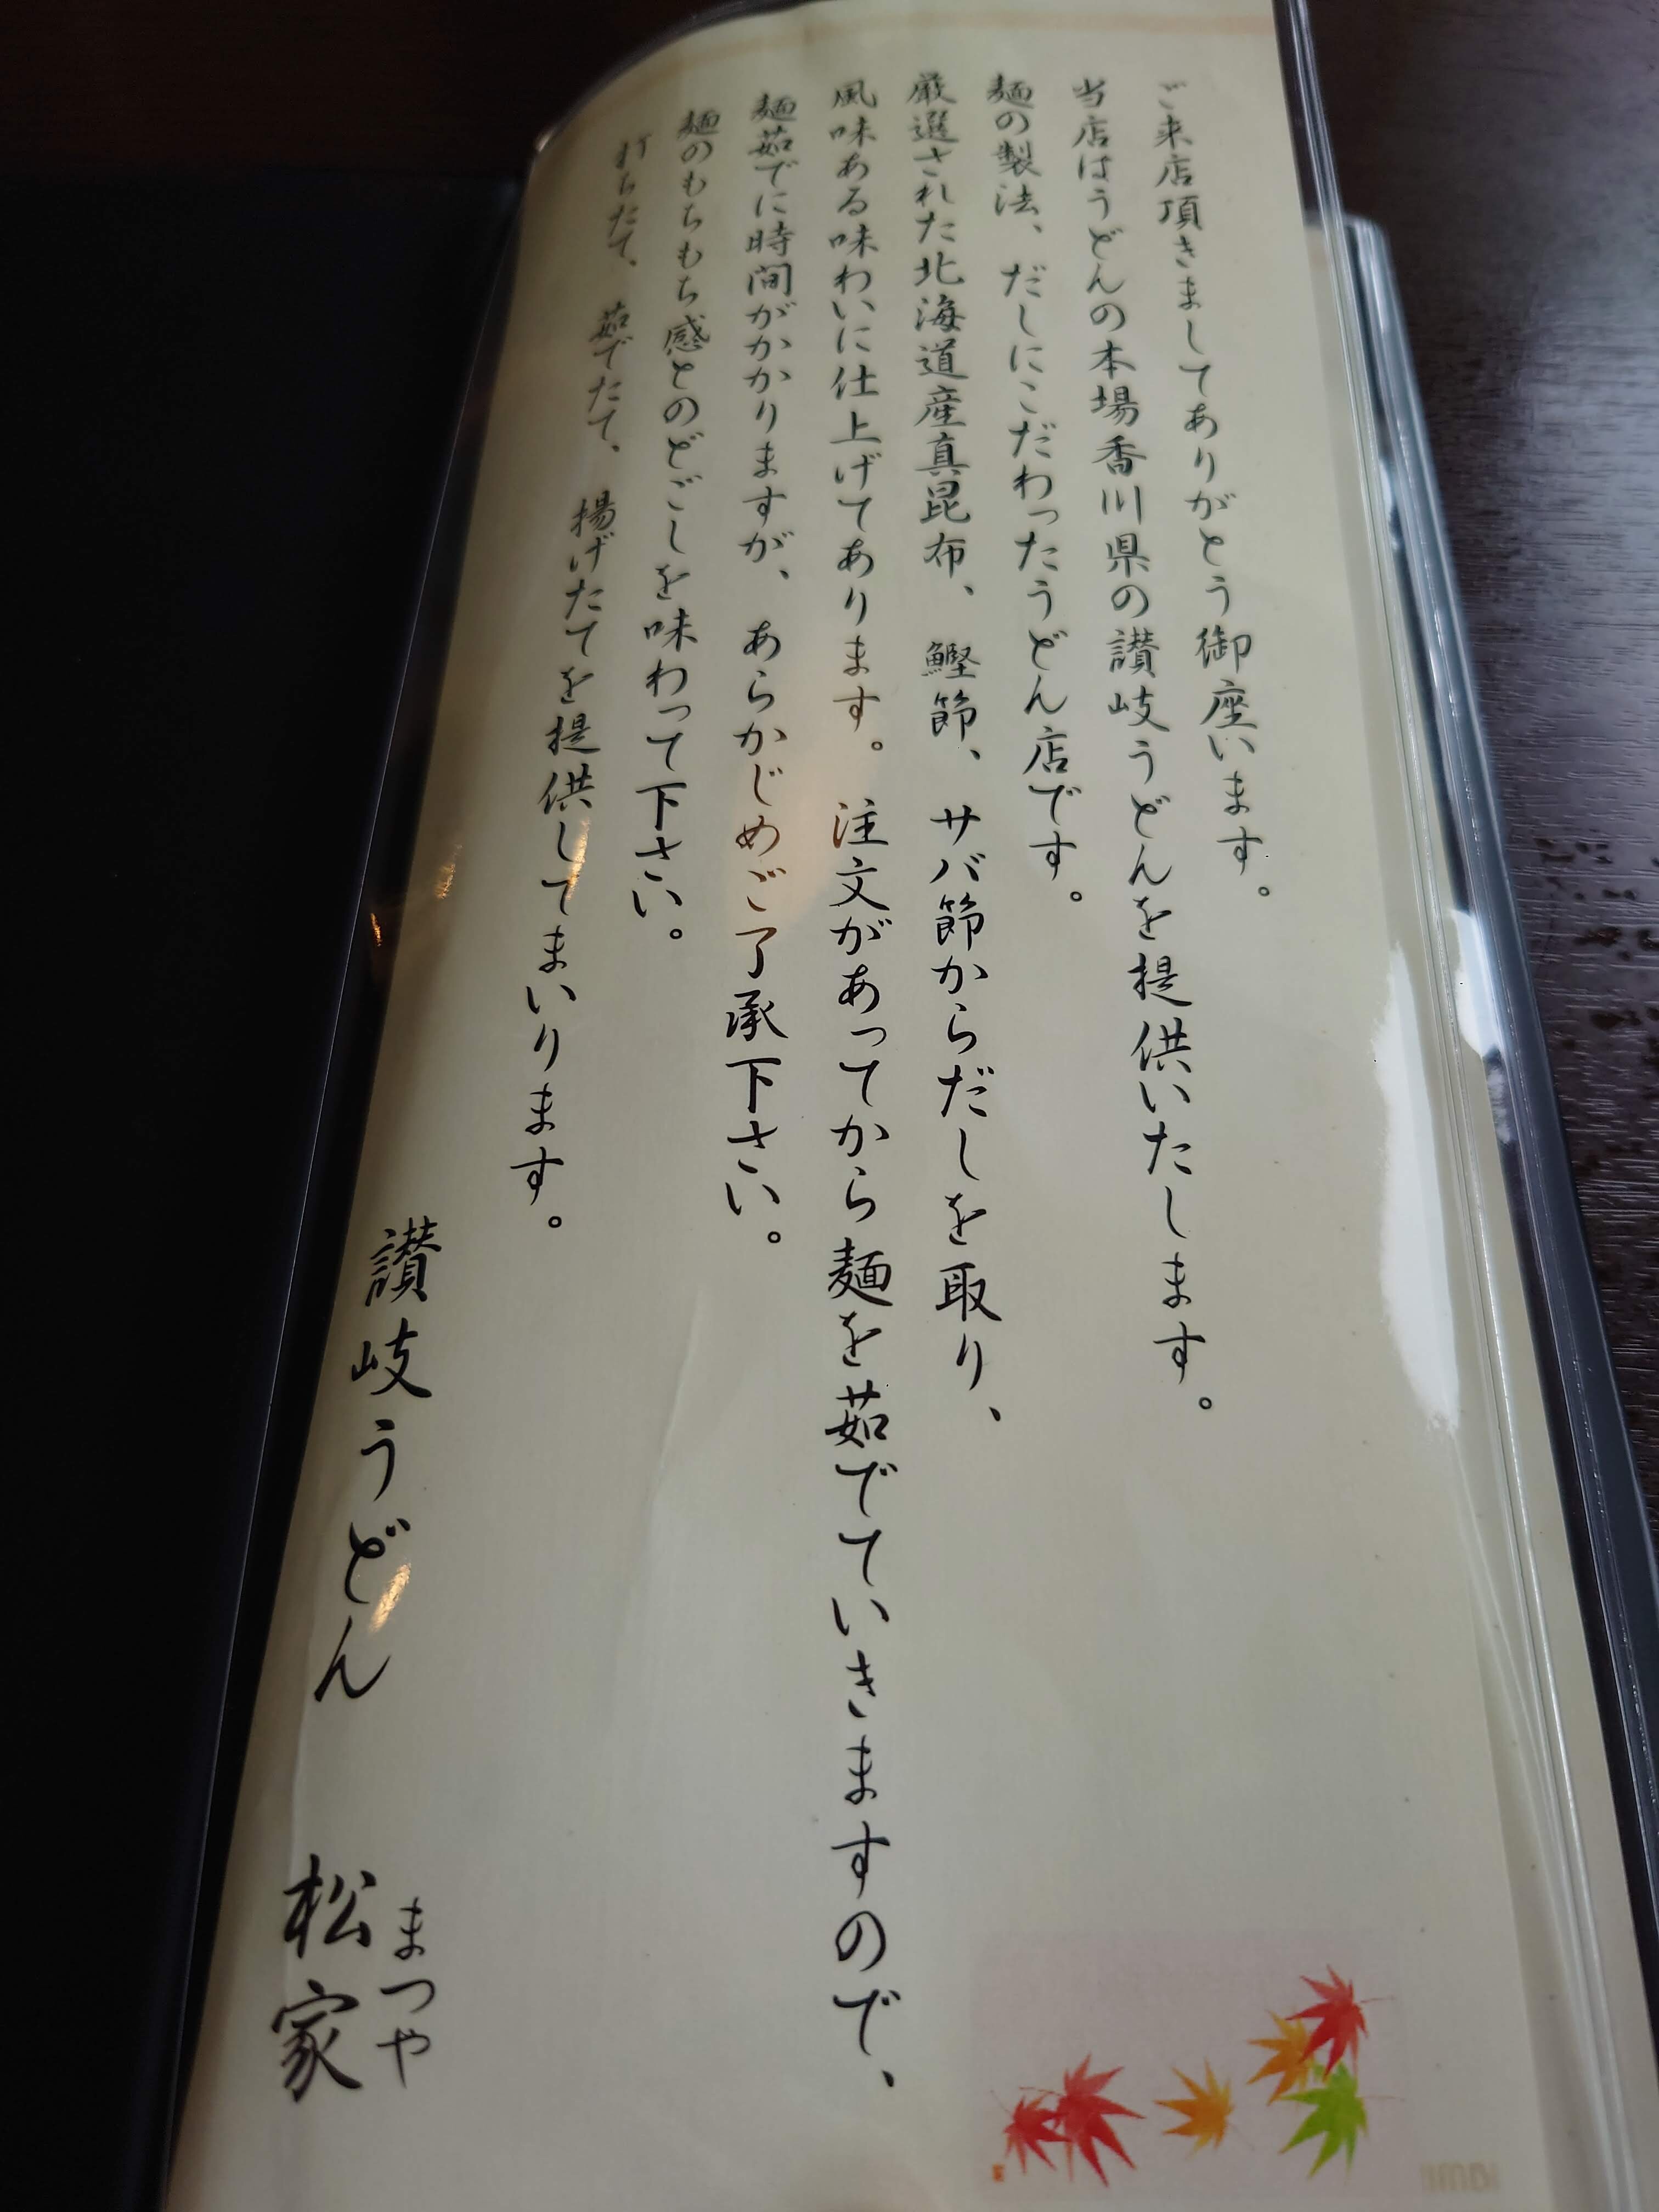 ご来店頂きましてありがとう御座います。
当店はうどんの本場香川県の讃岐うどんを提供いたします。
麺の製法、だしにこだわったうどん店です。
厳選された北海道産真昆布、鰹節、サバ節からだしを取り、
風味ある味わいに仕上げてあります。注文があってから麺を茹でていきますので、
麺茹でに時間がかかりますが、あらかじめご了承下さい。
麺のもちもち感とのどごしを味わって下さい。
打ちたて、茹でたて、揚げたてを提供してまいります。
讃岐うどん 松家
まつや